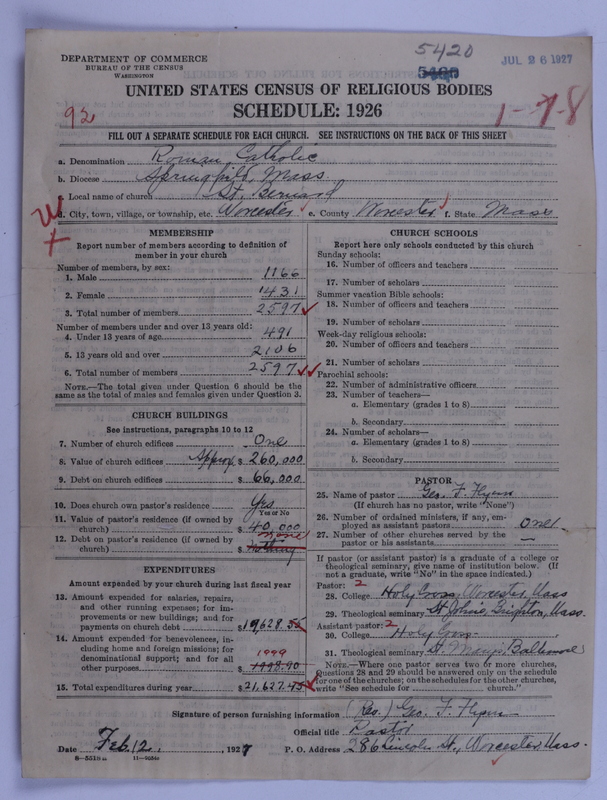 5420
5420
JUL 26 1927
DEPARTMENT OF COMMERCE
BUREAU OF THE CENSUS
WASHINGTON
UNITED STATES CENSUS OF RELIGIOUS BODIES
SCHEDULE: 1926
92
1-7-8
FILL OUT A SEPARATE SCHEDULE FOR EACH CHURCH. SEE INSTRUCTIONS ON THE BACK OF THIS SHEET
a. Denomination Roman Catholic
b. Diocese Springfield, Mass.
c. Local name of church St. Bernard
d. City, town, village, or township, etc. Worcester e. County Worcester f. State Mass
MEMBERSHIP
Report number of members according to definition of member in your church
Number of members, by sex:
1. Male 1166
2. Female 1431
3. Total number of members 2597
Number of members under and over 13 years old:
4. Under 13 years of age 491
5. 13 years old and over 2106
6. Total number of members 2597
NOTE.—The total given under Question 6 should be the same as the total of males and females given under Question 3.
CHURCH BUILDINGS
See instructions, paragraphs 10 to 12
7. Number of church edifices One
8. Value of church edifices Approx. $ 260,000
9. Debt on church edifices $ 66,000
10. Does church own pastor's residence Yes
Yes or No
11. Value of pastor's residence (if owned by church) $ 40,000
12. Debt on pastor's residence (if owned by church) $ nothing
none
EXPENDITURES
Amount expended by your church during last fiscal year
13. Amount expended for salaries, repairs, and other running expenses; for improvements or new buildings; and for payments on church debt $19,628.55
14. Amount expended for benevolences, including home and foreign missions; for denominational support; and for all other purposes $1998.90
1999
15. Total expenditures during year $21,627.45
CHURCH SCHOOLS
Report here only schools conducted by this church
Sunday schools:
16. Number of officers and teachers
17. Number of scholars
Summer vacation Bible schools:
18. Number of officers and teachers
19. Number of scholars
Week-day religious schools:
20. Number of officers and teachers
21. Number of scholars
Parochial schools:
22. Number of administrative officers
23. Number of teachers—
a. Elementary (grades 1 to 8)
b. Secondary
24. Number of scholars—
a. Elementary (grades 1 to 8)
b. Secondary
PASTOR
25. Name of pastor Geo. F. Flynn
(If church has no pastor, write "None")
26. Number of ordained ministers, if any, employed as assistant pastors One
27. Number of other churches served by the pastor or his assistants —
If pastor (or assistant pastor) is a graduate of a college or theological seminary, give name of institution below. (If not a graduate, write "No" in the space indicated.)
Pastor: 2
28. College Holy Cross, Worcester, Mass
29. Theological seminary St. John's, Brighton, Mass.
Assistant pastor: 2
30. College Holy Cross
31. Theological seminary St. Mary's, Baltimore
NOTE.—Where one pastor serves two or more churches, Questions 28 and 29 should be answered only on the schedule for one of the churches; on the schedules for the other churches, write "See schedule for church."
Signature of person furnishing information (Rev.) Geo. F. Flynn
Official title Pastor
Date Feb. 12, 1927 P. O. Address 286 Lincoln St., Worcester, Mass.